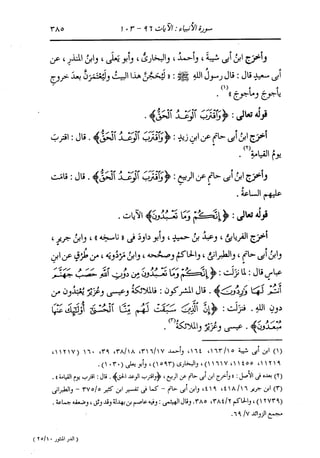 سورة الأنبياء : الآيات ٩٦ - ١٠٣
٣٨٥
وأخرج ابنُ أبى شيبةَ ، وأحمدُ ، والبخارىُّ ، وأبو يَعْلَى ، وابنُ المنذرِ ، عن
أبى سعيدٍ قال : قال رسولُ اللهِ ﷺ : « لَيُحَجَّنَّ هذا البيتُ ولَيُعْتَمَرَنَّ بعدَ خروجِ
يأجوجَ ومأجوجَ »(١) .
قولُه تعالى : ﴿وَٱقْتَرَبَ ٱلْوَعْدُ ٱلْحَقُّ﴾ .
أخرَج ابنُ أبى حاتمٍ عن ابنِ زيدٍ : ﴿وَٱقْتَرَبَ ٱلْوَعْدُ ٱلْحَقُّ﴾ . قال : اقترب
يومُ القيامةِ(٢) .
وأخرَج ابنُ أبى حاتمٍ عن الربيعِ : ﴿وَٱقْتَرَبَ ٱلْوَعْدُ ٱلْحَقُّ﴾ . قال : قامَت
عليهم الساعةُ .
قولُه تعالى : ﴿إِنَّكُمْ وَمَا تَعْبُدُونَ﴾ الآيات .
أخرَج الفريابىُّ ، وعبدُ بنُ حميدٍ ، وأبو داودَ فى « ناسخِه » ، وابنُ جريرٍ ،
وابنُ أبى حاتمٍ ، والطبرانىُّ ، والحاكمُ وصحَّحه ، وابنُ مَرْدُويَه ، من طُرُقٍ عن ابنِ
عباسٍ قال : لما نزلت : ﴿إِنَّكُمْ وَمَا تَعْبُدُونَ مِن دُونِ ٱللَّهِ حَصَبُ جَهَنَّمَ
أَنتُمْ لَهَا وَٰرِدُونَ﴾ . قال المشركون : فالملائكةُ وعيسى وعُزَيرٌ يُعبَدُون من
دونِ اللهِ . فنزلت : ﴿إِنَّ ٱلَّذِينَ سَبَقَتْ لَهُم مِّنَّا ٱلْحُسْنَىٰٓ أُو۟لَٰٓئِكَ عَنْهَا
مُبْعَدُونَ﴾ . عيسى وعُزَيرٌ والملائكةُ(٣) .
(١) ابن أبى شيبة ١٦٣/١٥، ١٦٤، وأحمد ٣١٦/١٧، ٣٨/١٨، ٣٩، ١٦٠ (١١٢١٧،
١١٢١٩، ١١٤٥٥، ١١٦١٧)، والبخارى (١٥٩٣)، وأبو يعلى (١٠٣٠).
(٢) بعده فى الأصل : « وأخرج ابن أبى حاتم عن الربيع ، ﴿واقترب الوعد الحق﴾ . قال : اقترب يوم القيامة » .
(٣) ابن جرير ٤١٨/١٦، ٤١٩، وابن أبى حاتم - كما فى تفسير ابن كثير ٣٧٥/٥ - والطبرانى
(١٢٧٣٩)، والحاكم ٣٨٤/٢، ٣٨٥، وقال الهيثمى : وفيه عاصم بن بهدلة وقد وثق ، وضعفه جماعة .
مجمع الزوائد ٦٩/٧.
( الدر المنثور ٢٥/١٠ )